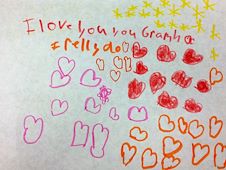 I love you you Grandpa
I relly do